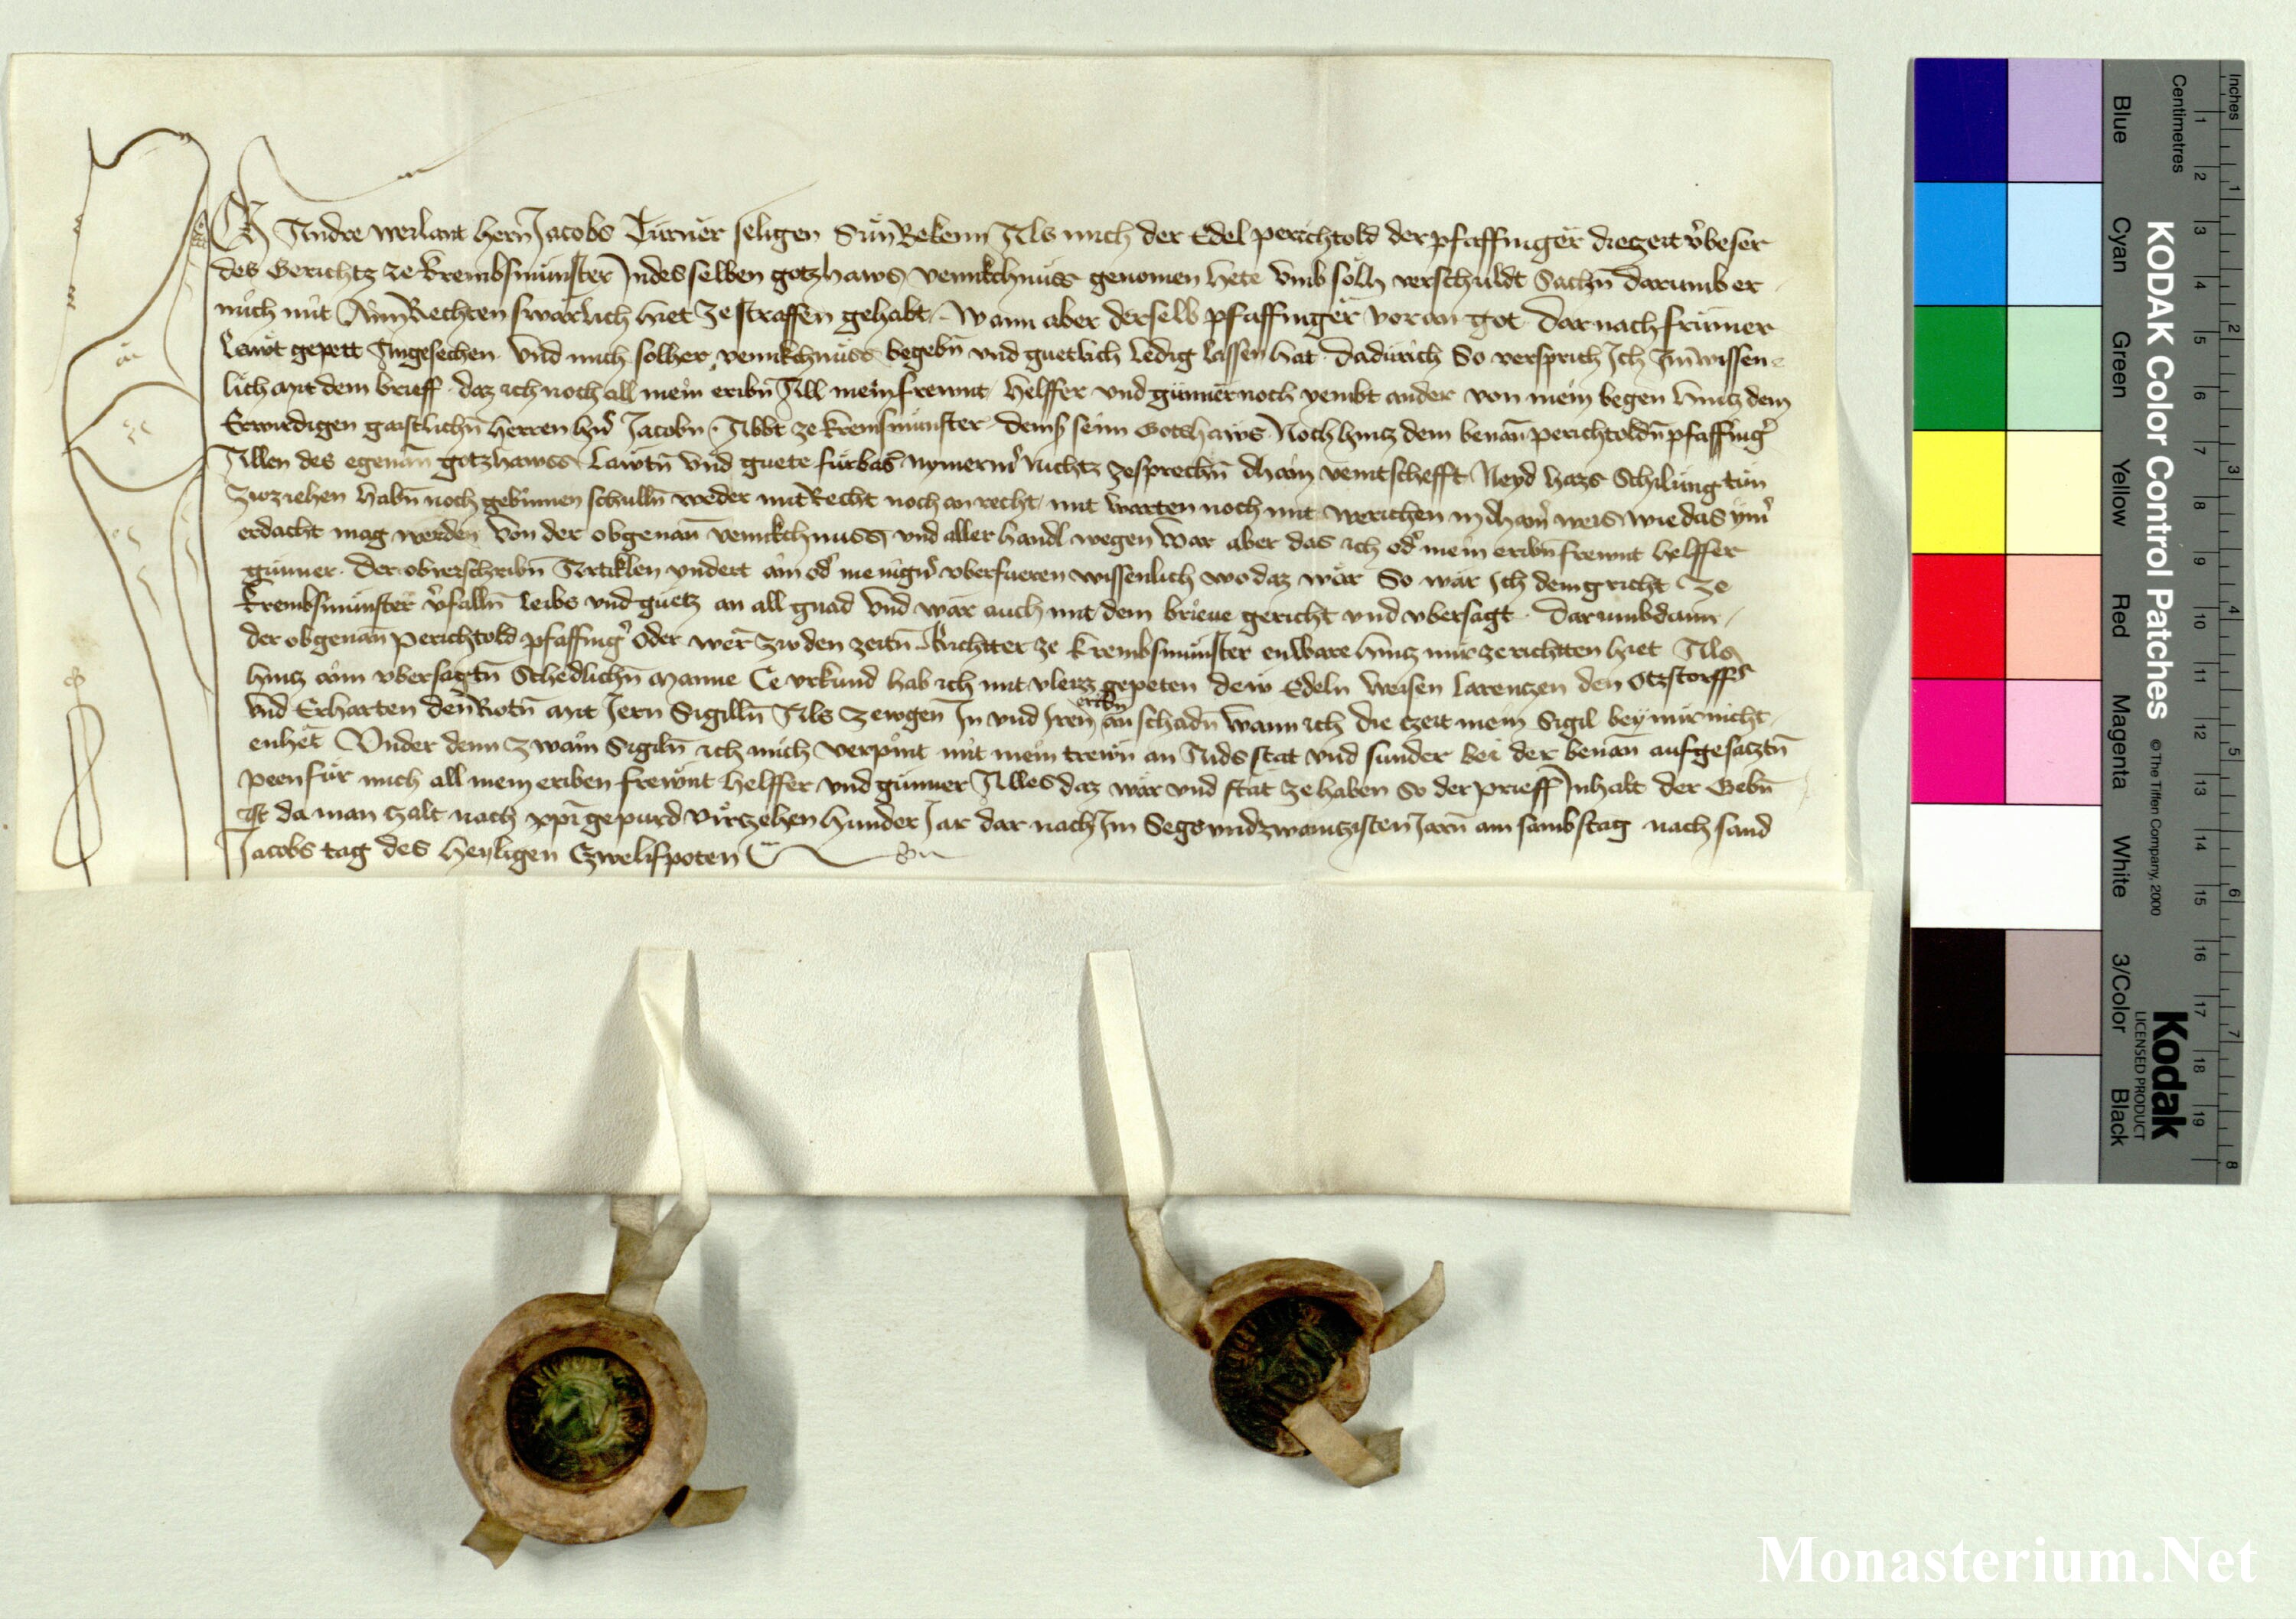 Ich Andre weilant hern Jacobs Türner seligen Sün Bekenn Als mich der Edel perichtold der pfaffinger diezeit v̾beser
des Gerichtz ze krembsmünster In des selben gotzhaws vennkchnüss genomen hete vmb sölh verschuldt Sachn̄ darumb er
mich mit Aim Rechten swärlich hiet ze straffen gehabt Wann aber derselb pfaffinger vor an got dar nach frümer
Läwt gepett Angesechen vnd mich solher vennkchnüss begebn̄ vnd guetlich ledig lassen hat dadurich So versprich Ich Im wissen
lich mit dem brieff daz ich noch all mein eribn̄ All mein frewnt helffer vnd günner noch yembt ander von mein begen hintz dem
Erwirdigen gaistlichn̄ herren hr̄n Jacobn Abbt ze kremsmünster dem seim Gotshaws Noch hintz dem benan̄ perichtoldn̄ pfaffing̾
Allen des egenan̄ gotzhawss Läwtn̄ vnd guete fürbas nymerm̾ nichtz zesprechn̄ dhain veintschefft Neyd hazs Schilung tün
zwziehen habn̄ noch gebinnen schulln̄ weder mit Recht noch an recht mit warten noch mit werichen in dhain̾ weis wie das ym̾
erdacht mag werden Von der obgenan̄ vennkchnuss vnd aller handl wegen Wär aber das ich od̾ mein eribn̄ frewnt helffer
günner der obverschribn̄ Artiklen vndert ain od̾ meniger vberfueren wissenlich wo daz wär So wär Ich dem gericht ze
Krembsmünster v̾falln̄ leibs vnd guetz an all gnad vnd wär auch mit dem brieue gericht vnd vbersagt Darumb dann
der obgenan̄ perichtold pfaffing̾ oder wer zw den zeitn̄ Richtter ze krembsmünster enware hintz mir ze richtten hiet Als
hintz aim vbersagtn̄ Schedlichn̄ manne Ce vrkund hab ich mit vleizz gepeten dew Edeln weisen Larenczen den Otzstorff̾
vnd Erharten den Rotn̄ mit Iern Sigilln̄ Als zewgen In vnd Iren eribn̄ an schadn̄ Wann ich die czeit mein Sigil bey mir nicht
enhet Vnder denn zwain Sigiln̄ ich mich verpint mit mein trewn̄ an Aids stat vnd sunder bei der benan̄ aufgesatztn̄
peen für mich all mein eriben frewnt helffer vnd günner Alles daz wär vnd stät ze haben So der prieff Inhalt der Gebn̄
ist da man zalt nach xpī gepurd virzehen hunder Jar dar nach Im Segs vnd zwaintzisten Jarn̄ am sambstag nach sand
Jacobs tag des heyligen Czwelifpoten
KODAK Color Control Patches
© The Tiffen Company, 2000
Kodak
LICENSED PRODUCT
Blue Cyan Green Yellow Red Magenta White 3/Color Black
Centimetres 1 2 3 4 5 6 7 8 9 10 11 12 13 14 15 16 17 18 19
Inches 1 2 3 4 5 6 7 8
Monasterium.Net